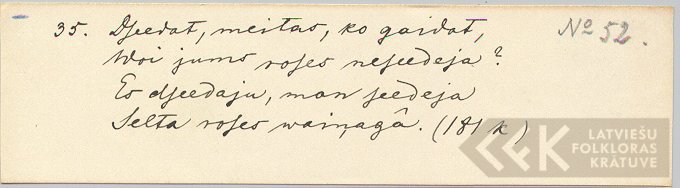 35. Dseedat, meitas, ko gaidat, No 52.
Woi jums roses neseedeja?
Es dseedaju, man seedeja
Selta roses waiņagâ. (181 k)
LATVIEŠU
FOLKLORAS
KRĀTUVE